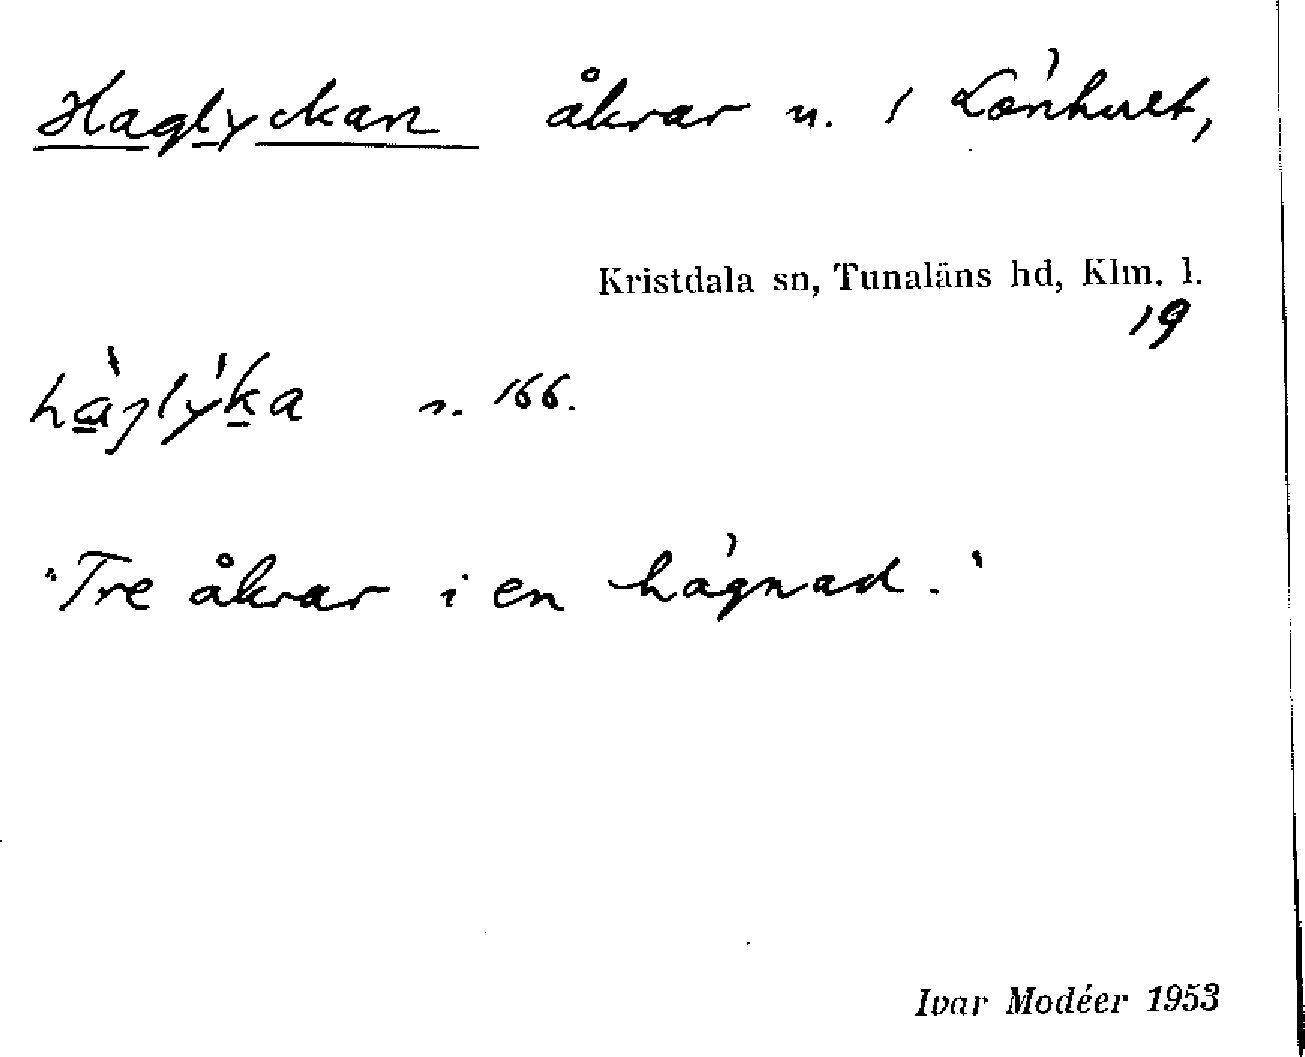 Haglyckan åkrar u. 1 Lönhult,
Kristdala sn, Tunaläns hd, Klm. l.
19
hàglýka n. 166.
"Tre åkrar i en hägnad."
Ivar Modéer 1953